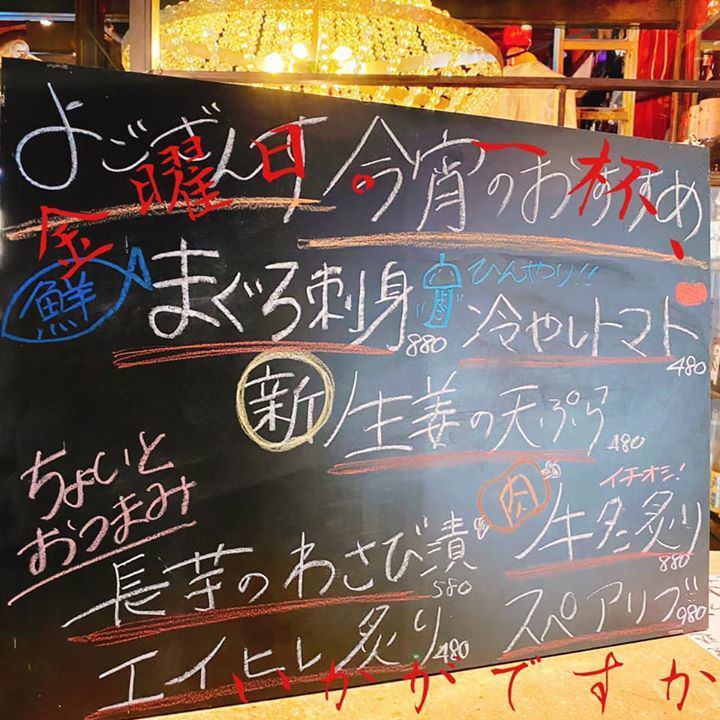 よござんす 今宵のおすすめ
金曜日。一杯、
鮮 まぐろ刺身 880
ひんやり!!
冷やしトマト 480
新 生姜の天ぷら 480
ちょいと
おつまみ
肉 イチオシ!
牛タン炙り 880
長芋のわさび漬 580
スペアリブ!! 980
エイヒレ炙り 480
いかがですか